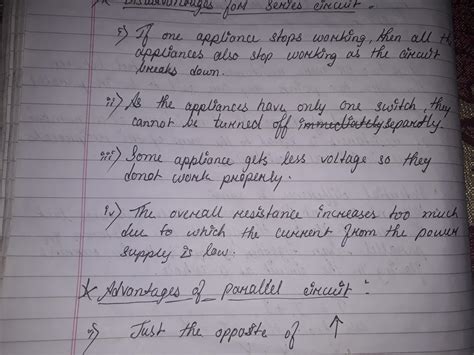 * Disadvantages for series circuit :
i) If one appliance stops working, then all the
appliances also stop working as the circuit
breaks down.
ii) As the appliances have only one switch, they
cannot be turned off immediately separatly.
iii) Some appliance gets less voltage so they
donot work properly.
iv) The overall resistance increases too much
due to which the current from the power
supply is low.
* Advantages of parallel circuit :
i) Just the opposite of ↑